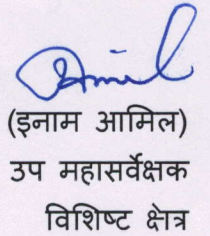 (इनाम आमिल)
उप महासर्वेक्षक
विशिष्ट क्षेत्र